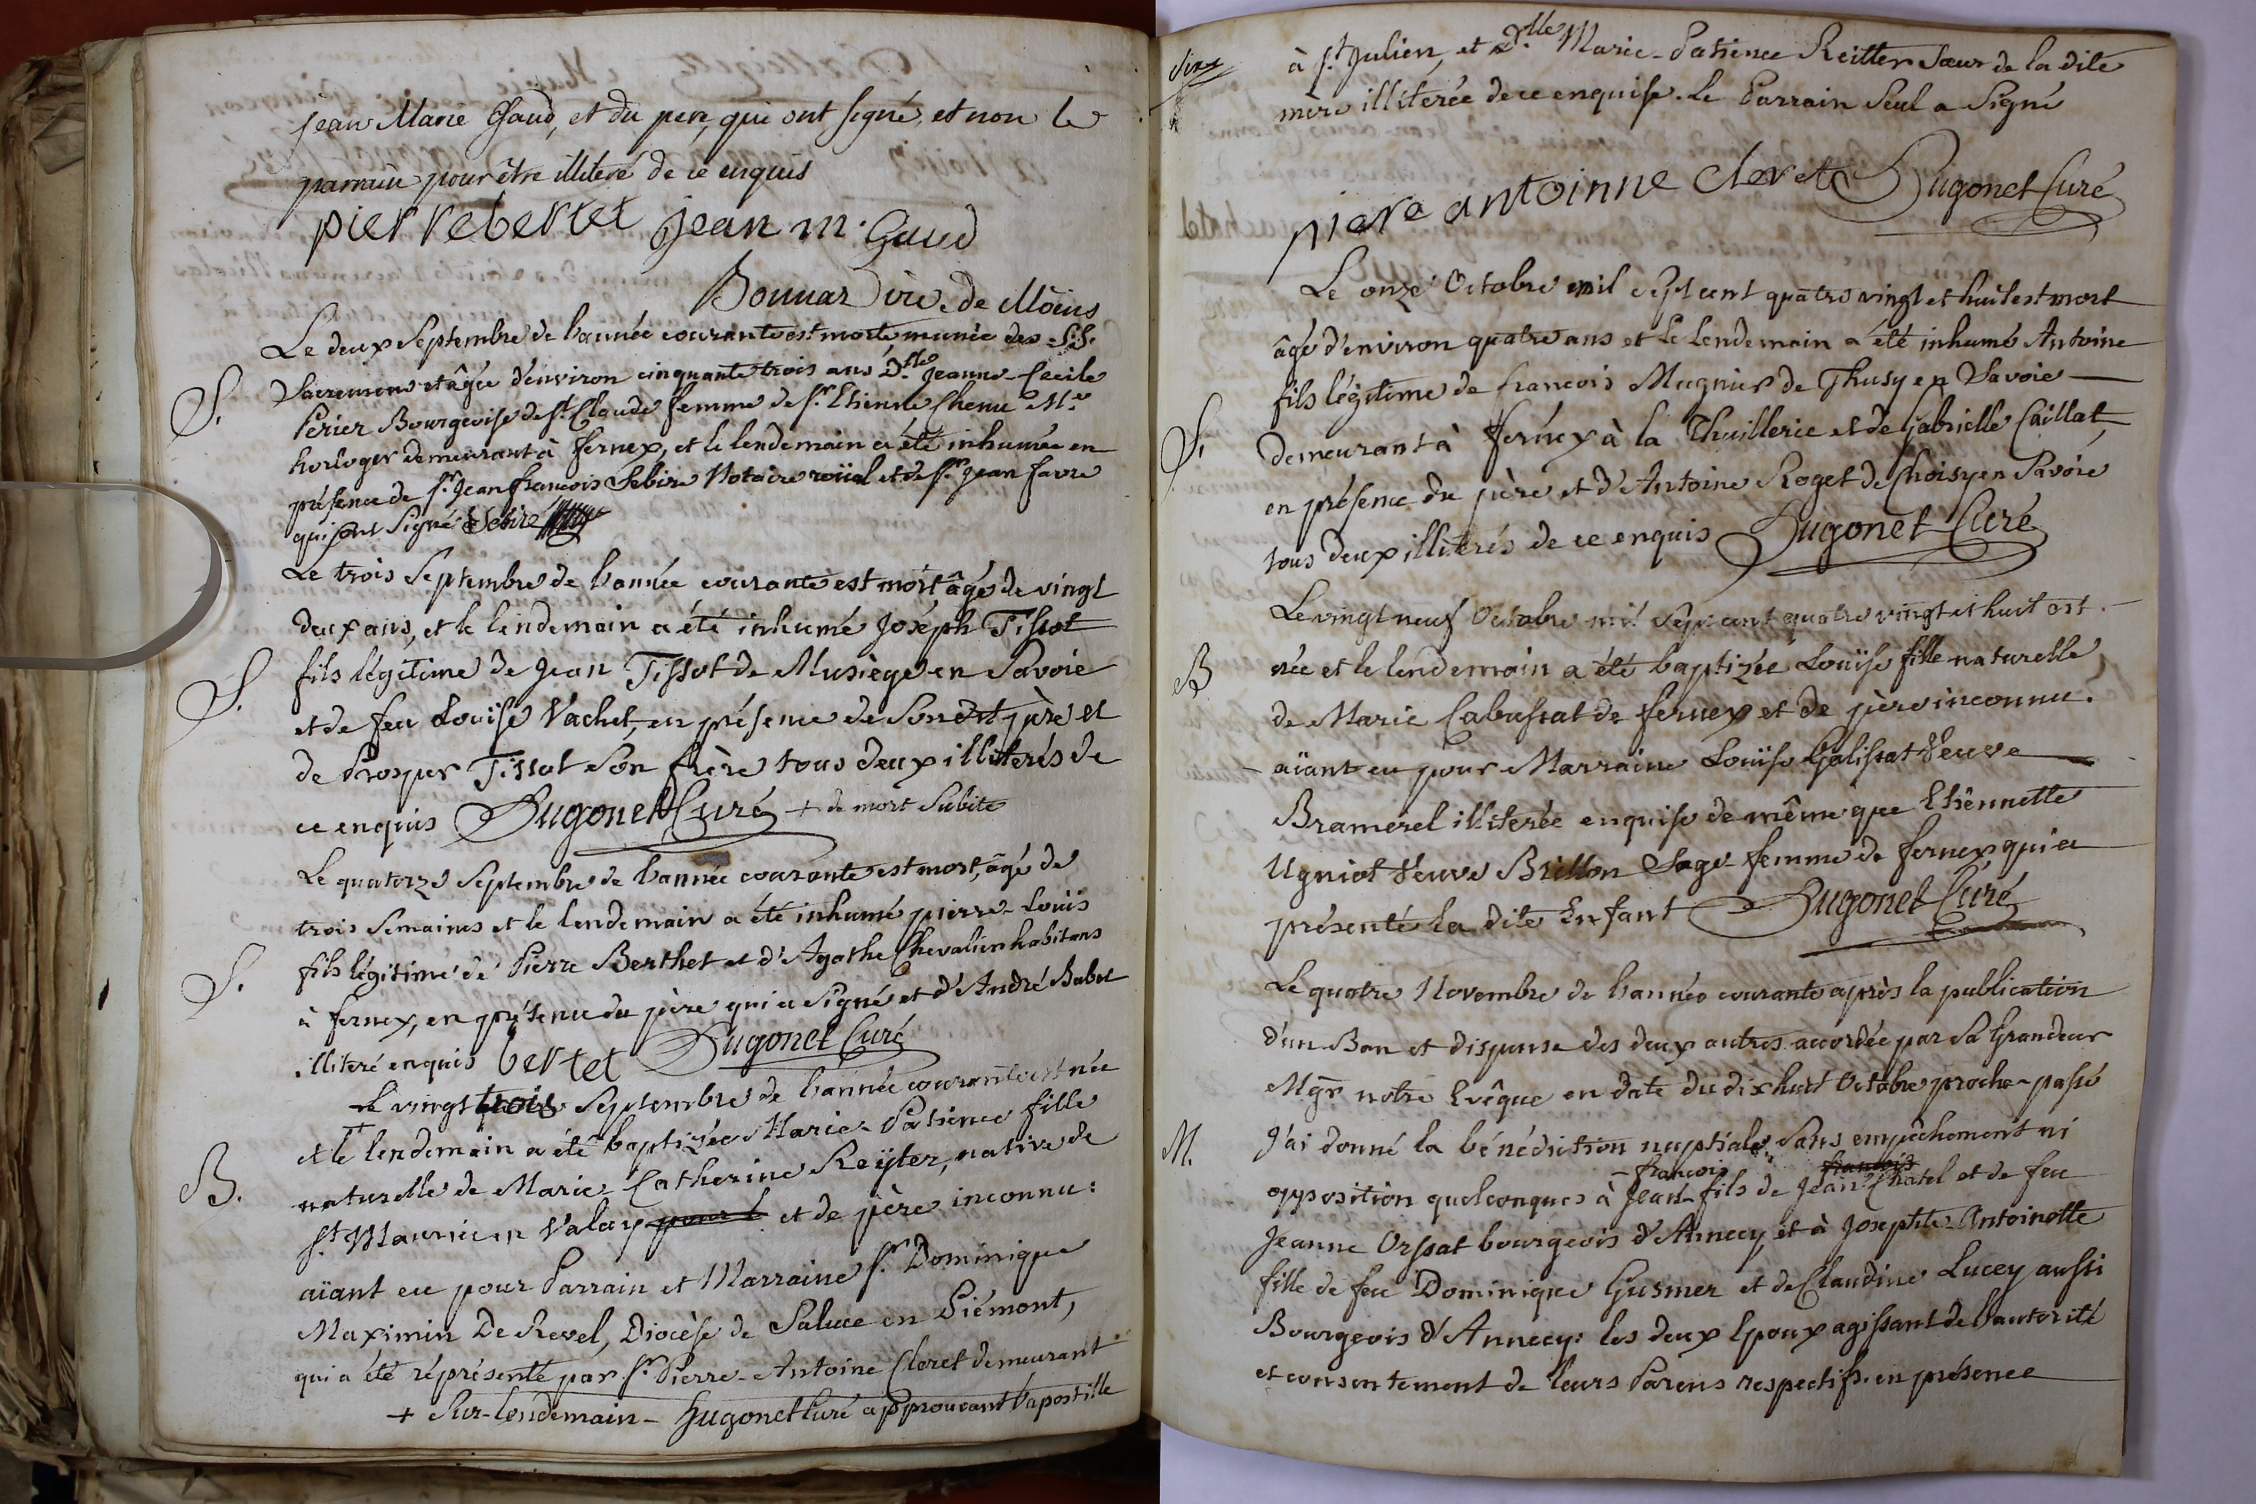 Jean Marie Gaud, et du pere, qui ont signé, et non le
parrain pour être illiteré de ce enquis
pierre bertet Jean m. Gaud
Bonnar vic. de Moëns
Le deux Septembre de l'année courante est morte munie des S.S.
S. Sacremens et âgée d'environ cinquante trois ans D.lle Jeanne-Cecile
Perier Bourgeoise de St. Claude femme de sr. Etienne Chenu M.e
horloger demeurant à fernex, et le lendemain a été inhumée en
présence de sr. Jean françois Sebire Notaire roiial et de sr. Jean favre
qui ont Signé Sebire
Le trois Septembre de l'année courante est mort, âgé de vingt
deux ans, et le lendemain a été inhumé Joséph Tissot
S. fils légitime de Jean Tissot de Musiège en Savoie
et de feu Louïse Vachet, en présence de Son dt père et
de Prosper Tissot Son frère tous deux illiterés de
ce enquis Hugonet Curé + de mort Subite
Le quatorze Septembre de l'année courante est mort, âgé de
trois Semaines et le lendemain a été inhumé pierre-Louïs
S. fils légitime de Pierre Berthet et d'Agathe Chevalier habitans
à fernex, en présence du père qui a Signé et d'André Babet
illiteré enquis bertet Hugonet Curé
Le vingt trois Septembre de l'année courante est née
et le + lendemain a été baptizée Marie-Patience fille
B. naturelle de Marie Catherine Reÿter, native de
St. Maurice en Valay pour l et de père inconnu:
aïant eu pour Parrain et Marraine sr. Dominique
Maximin De Revel, Diocèse de Saluce en Piémont,
qui a été réprésenté par sr. Pierre-Antoine Cleret demeurant
+ Sur-lendemain - Hugonet Curé approuvant l'apostille
à St. Julien, et D.lle Marie-Patience Reitter Sœur de la dite
mère illiterée de ce enquise. Le Parrain Seul a Signé
piere antoinne cleret Hugonet Curé
Le onze Octobre mil sept cent quatre vingt et huit est mort
âgé d'environ quatre ans et Le Lendemain a été inhumé Antoine
fils légitime de francois Mugnier de Thusy en Savoie
S. demeurant à fernex à la Thuillerie et de Gabrielle Caillat,
en présence du père et d'Antoine Roget de Choisy en Savoie
tous deux illiterés de ce enquis Hugonet Curé
Le vingt neuf Octobre mil Sept cent quatre vingt et huit est
B née et le lendemain a été baptizée Louïse fille naturelle
de Marie Cabussat de fernex et de père inconnu.
aïant eu pour Marraine Louïse Galissat Veuve
Bramerel illiterée enquise de même que Ethiennette
Ugniot Veuve Brillon Sage-femme de fernex, qui a
présenté la dite Enfant Hugonet Curé
Le quatre Novembre de l'année courante après la publication
d'un Ban et dispense des deux autres accordée par Sa Grandeur
Mgr. notre Evêque en date du dix huit Octobre proche-passé
M. J'ai donné la bénédiction nuptiale Sans empêchement ni
françois françois
opposition quelconques à Jean- fils de Jean Chatel et de feu
Jeanne Orssat bourgeois d'Annecy, et à Josephte-Antoinette
fille de feu Dominique Gusmer et de Claudine Lucey aussi
Bourgeois d'Annecy: les deux Epoux agissant de l'autorité
et consentement de leurs Parens respectifs. en présence